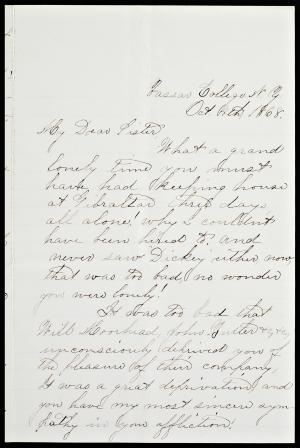 Vassar College N.Y.
Oct 6th, 1868.
My Dear Sister,
What a grand
lonely time you must
have had keeping house
at Gibraltar three days
all alone! why I couldn't
have been hired to! and
never saw Dickey either now
that was too bad, no wonder
you were lonely!
It was too bad that
Will Moorhead, John, &c, &c,
unconsciously deprived you of
the pleasure of their company,
It was a great deprivation, and
you have my most sincere sym-
pathy in your affliction!